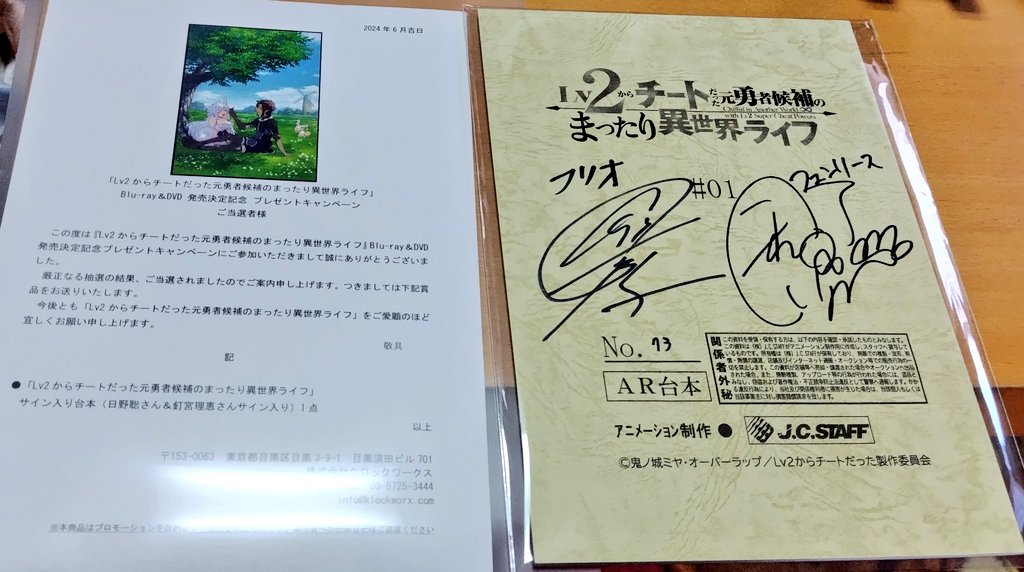 2024年6月吉日
「Lv2からチートだった元勇者候補のまったり異世界ライフ」
Blu-ray＆DVD 発売決定記念 プレゼントキャンペーン
ご当選者様
この度は『Lv2からチートだった元勇者候補のまったり異世界ライフ』Blu-ray＆DVD
発売決定記念プレゼントキャンペーンにご参加いただきまして誠にありがとうございま
した。
厳正なる抽選の結果、ご当選されましたのでご案内申し上げます。つきましては下記賞
品をお送りいたします。
今後とも「Lv2からチートだった元勇者候補のまったり異世界ライフ」をご愛顧のほど
宜しくお願い申し上げます。
敬具
記
●「Lv2からチートだった元勇者候補のまったり異世界ライフ」
サイン入り台本（日野聡さん＆釘宮理恵さんサイン入り）1点
以上
〒153-0063 東京都目黒区目黒3-9-1 目黒須田ビル701
株式会社クロックワークス
03-5725-3444
info@klockworx.com
※本商品はプロモーションを目的
はご遠慮ください
Lv2からチートだった元勇者候補の
Chillin' in Another World with Lv2 Super Cheat Powers
まったり異世界ライフ
フリオ
#01
フェンリース
No. 73
AR台本
関係者外秘
アニメーション制作 ● J.C.STAFF
©鬼ノ城ミヤ・オーバーラップ／Lv2からチートだった製作委員会